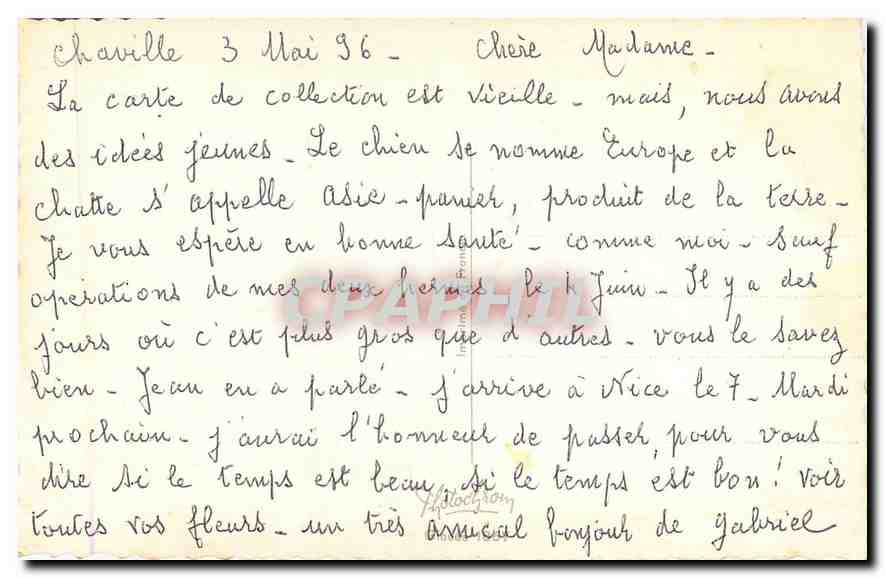 Chaville 3 Mai 96 - Chère Madame -
La carte de collection est vieille - mais, nous avons
des idées jeunes - Le chien se nomme Europe et la
chatte s'appelle Asie - panier, produit de la terre -
Je vous espère en bonne santé - comme moi - sauf
opérations de mes deux hernies le 4 Juin - Il y a des
jours où c'est plus gros que d'autres - vous le savez
bien - Jean en a parlé - j'arrive à Nice le 7 - Mardi
prochain - j'aurai l'honneur de passer, pour vous
dire si le temps est beau, si le temps est bon ! Voir
toutes vos fleurs - un très amical bonjour de Gabriel
CPAPHIL
Photochrom